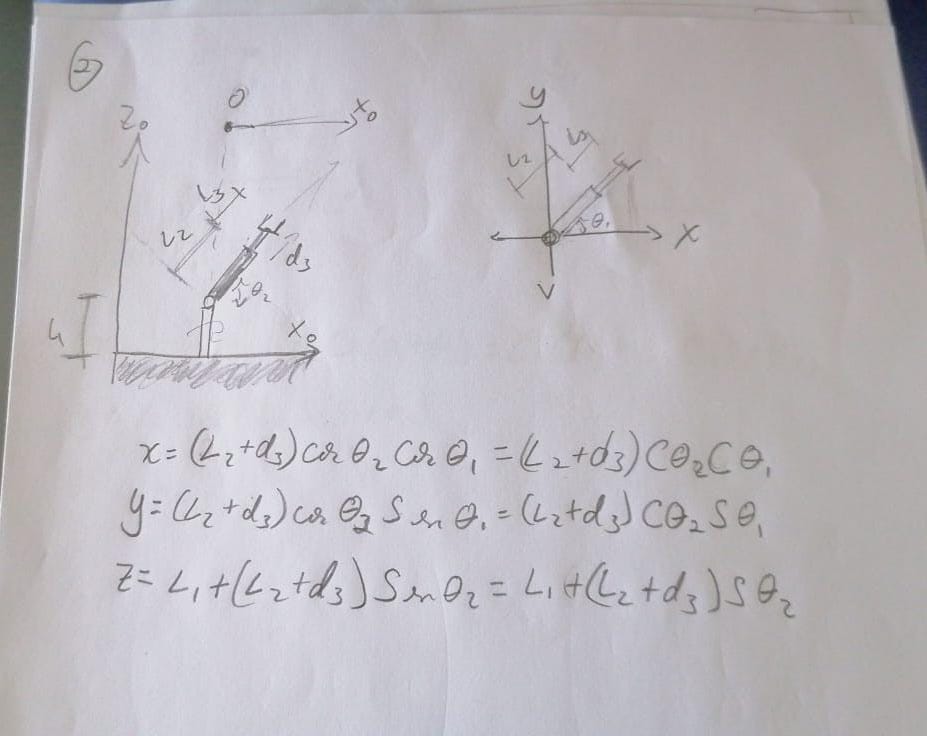 2
Z₀
O
X₀
L3
L2
d₃
θ₂
L1
X₀
y
L2
L3
θ₁
X
x = (L₂+d₃) cos θ₂ cos θ₁ = (L₂+d₃) Cθ₂Cθ₁
y = (L₂+d₃) cos θ₂ Sen θ₁ = (L₂+d₃) Cθ₂Sθ₁
z = L₁+(L₂+d₃) Sen θ₂ = L₁+(L₂+d₃) Sθ₂